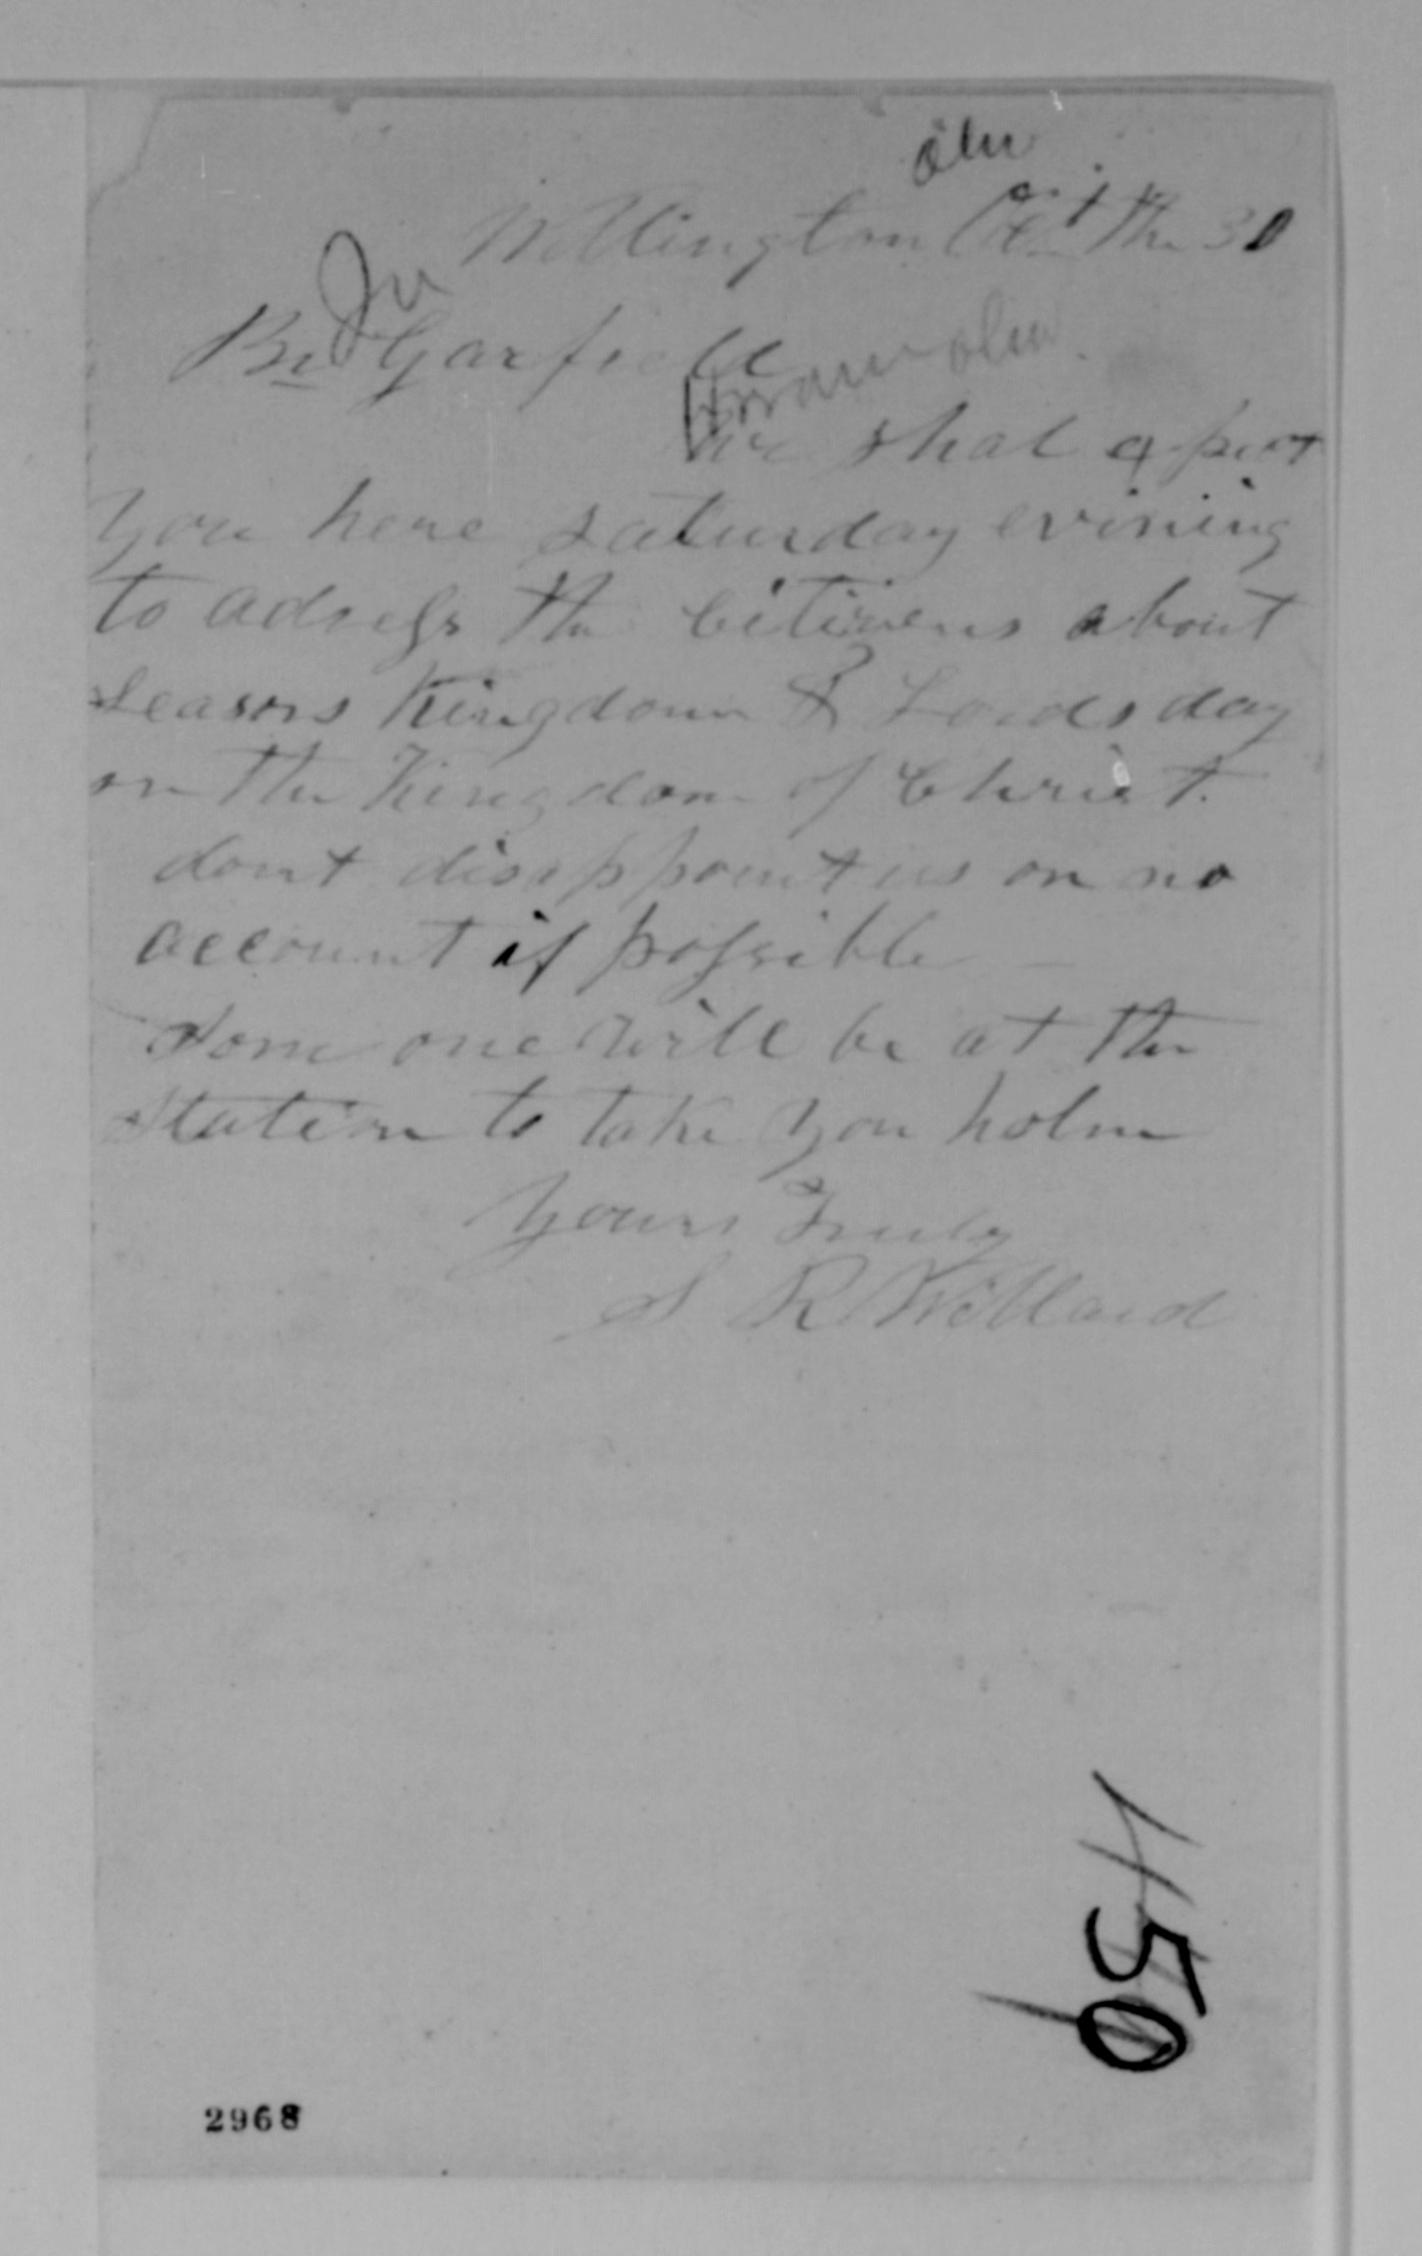 Ohio
Wellington Oct the 30
Jas
Br Garfield
Hiram Ohio
We shal expect
you here saturday evining
to adress the Citizens about
Seasors Kingdom & Lords day
on the Kingdom of Christ.
dont disappoint us on no
account if possible
Some one will be at the
station to take you holm
Yours Truly
S R Willard
450
2968